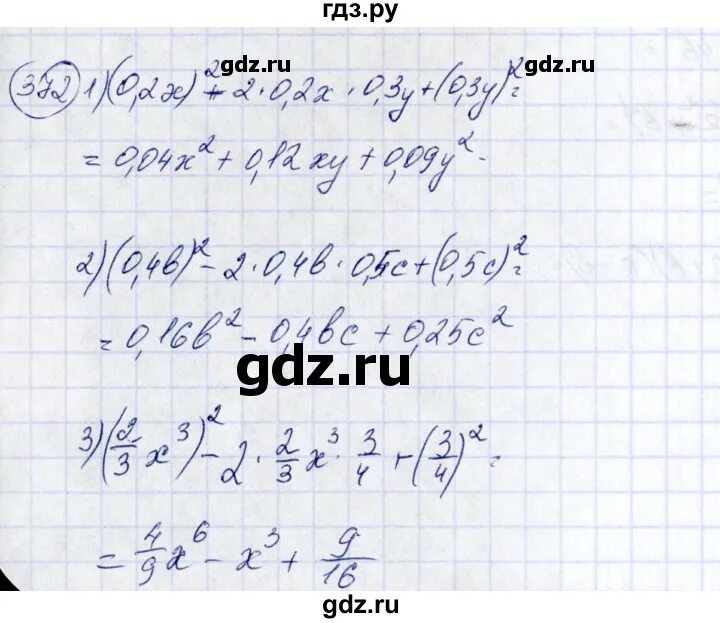 гдз.ру
gdz.ru gdz.ru
372 1) (0,2x)² + 2·0,2x·0,3y + (0,3y)² =
= 0,04x² + 0,12xy + 0,09y².
2) (0,4b)² - 2·0,4b·0,5c + (0,5c)² =
= 0,16b² - 0,4bc + 0,25c²
gdz.ru
3) (2/3 x³)² - 2·2/3 x³·3/4 + (3/4)² =
= 4/9 x⁶ - x³ + 9/16
gdz.ru